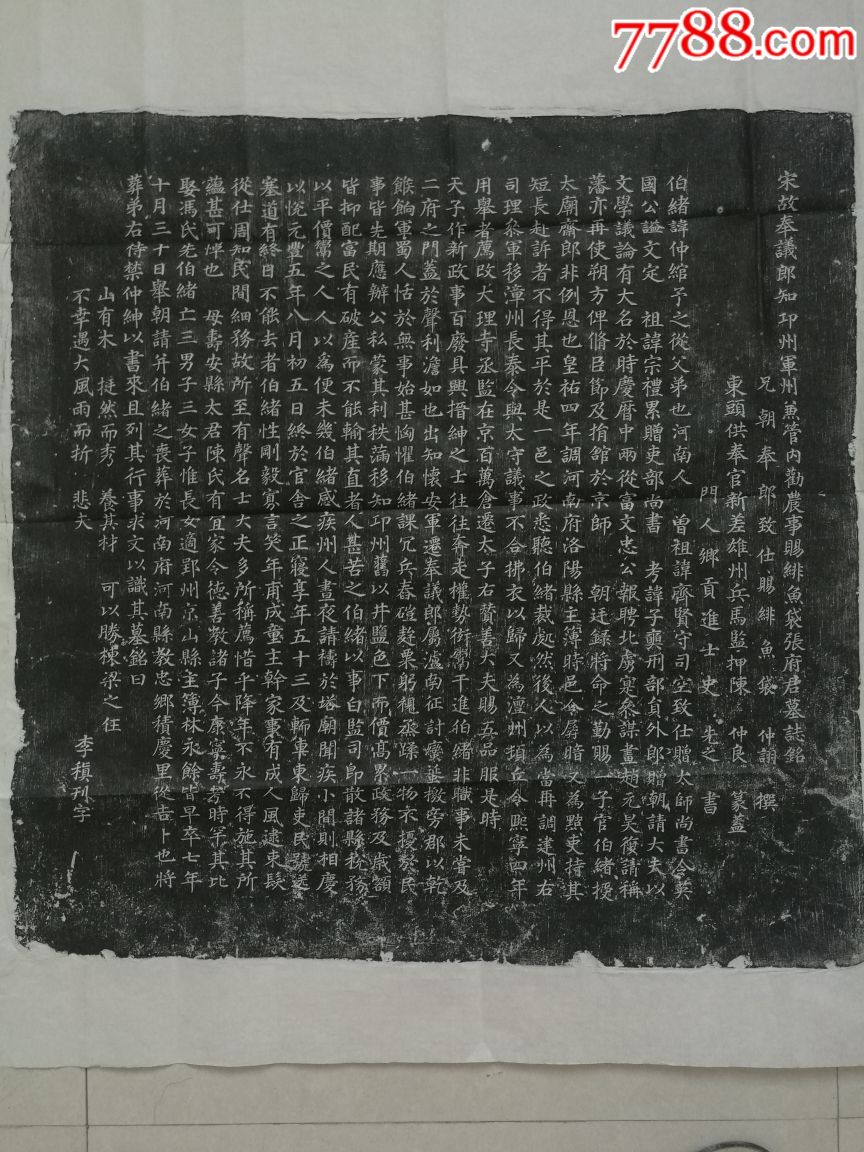 7788.com
宋故奉議郎知邛州軍州兼管內勸農事賜緋魚袋張府君墓誌銘
兄朝奉郎致仕賜緋魚袋 仲詢 撰
門人鄉貢進士史 先之 書
東頭供奉官新差雄州兵馬監押陳 仲良 篆蓋
伯緒諱仲綰予之從父弟也河南人 曾祖諱齊賢守司空致仕贈太師尚書令英
國公謚文定 祖諱宗禮累贈吏部尚書 考諱子奭刑部員外郎贈朝請大夫以
文學議論有大名於時慶曆中兩從富文忠公報聘北虜寔參謀畫趙元昊復請稱
藩亦再使朔方俾脩臣節及捐館於京師 朝廷錄將命之勤賜一子官伯緒授
太廟齋郎非例恩也皇祐四年調河南府洛陽縣主簿時邑令孱暗又為黠吏持其
短長赴訴者不得其平於是一邑之政悉聽伯緒裁處然後人以為當再調建州右
司理參軍移漳州長泰令與太守議事不合拂衣以歸又為澶州頓丘令熙寧四年
用舉者薦改大理寺丞監在京百萬倉遷太子右贊善大夫賜五品服是時
天子作新政事百廢具興搢紳之士往往奔走權勢衒鬻干進伯緒非職事未嘗及
二府之門蓋於聲利澹如也出知懷安軍遷奉議郎屬瀘南征討蠻蜑檄旁郡以乾
餱餉軍蜀人恬於無事始甚恟懼伯緒課冗兵舂磑趍粟躬視丞蹂一物不擾於民
事皆先期應辦公私蒙其利秩滿移知邛州舊以井鹽色下而價高累政務及歲額
皆抑配富民有破產而不能輸其直者人甚苦之伯緒以事白監司即散諸縣稅務
以平價鬻之人人以為便未幾伯緒感疾州人晝夜請禱於塔廟聞疾小間則相慶
以悅元豐五年八月初五日終於官舍之正寢享年五十三及輀車東歸吏民號送
塞道有終日不能去者伯緒性剛毅寡言笑年甫成童主幹家事有成人風逮束髮
從仕周知民間細務故所至有聲名士大夫多所稱薦惜乎降年不永不得施其所
蘊甚可悼也 母壽安縣太君陳氏有宜家令德善教諸子今康寧壽考時罕其比
娶馮氏先伯緒亡三男子三女子惟長女適郢州京山縣主簿林永餘皆早卒七年
十月三十日舉朝請并伯緒之喪葬於河南府河南縣教忠鄉積慶里從吉卜也將
葬弟右侍禁仲紳以書來且列其行事求文以識其墓銘曰
山有木 挺然而秀 養其材 可以勝棟梁之任
不幸遇大風雨而折 悲夫
李稹刊字